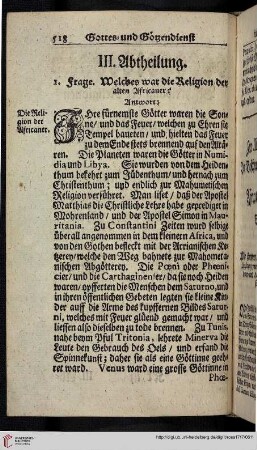 518 Gottes- und Götzendienst
III. Abtheilung.
1. Frage. Welches war die Religion der
alten Africaner?
Antwort:
Die Reli-
gion der
Africaner.
Ihre fürnemste Götter waren die Son-
ne/ und das Feuer/ welchen zu Ehren sie
Tempel baueten/ und hielten das Feuer
zu dem Ende stets brennend auf den Altä-
ren. Die Planeten waren die Götter in Numi-
dia und Libya. Sie wurden von dem Heiden-
thum bekehrt zum Jüdenthum/ und hernach zum
Christenthum; und endlich zur Mahumetischen
Religion verführet. Man liset/ daß der Apostel
Matthias die Christliche Lehre habe geprediget in
Mohrenland/ und der Apostel Simon in Mau-
ritania. Zu Constantini Zeiten ward selbige
überall angenommen in dem kleinern Africa, und
von den Gothen befleckt mit der Arrianischen Ke-
tzerey/ welche den Weg bahnete zur Mahometa-
nischen Abgötterey. Die Pœni oder Phœni-
cier/ und die Carthaginenser/ da sie noch Heiden
waren/ opfferten die Menschen dem Saturno, und
in ihren öffentlichen Gebeten legten sie kleine Kin-
der auff die Arme des kupffernen Bildes Satur-
ni, welches mit Feuer glüend gemacht war/ und
liessen also dieselben zu tode brennen. Zu Tunis,
nahe beym Pful Tritonia, lehrete Minerva die
Leute den Gebrauch des Oels/ und erfand die
Spinnekunst; daher sie als eine Göttinne geeh-
ret ward. Venus ward eine grosse Göttinne in
Phœ-